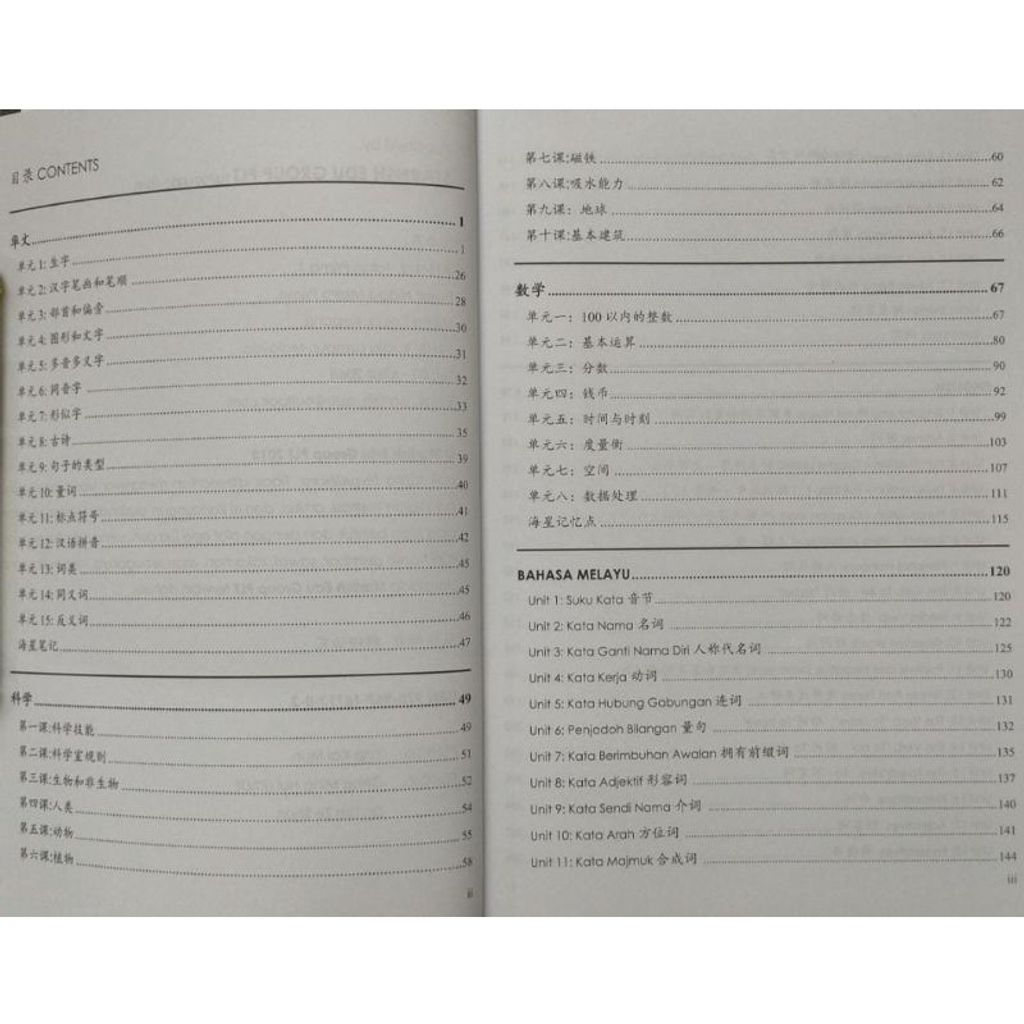 目录 CONTENTS
华文 1
单元 1: 生字 1
单元 2: 汉字笔画和笔顺 26
单元 3: 部首和偏旁 28
单元 4: 图形和文字 30
单元 5: 多音多义字 31
单元 6: 同音字 32
单元 7: 形似字 33
单元 8: 古诗 35
单元 9: 句子的类型 39
单元 10: 量词 40
单元 11: 标点符号 41
单元 12: 汉语拼音 42
单元 13: 词类 45
单元 14: 同义词 45
单元 15: 反义词 46
海星笔记 47
科学 49
第一课:科学技能 49
第二课:科学室规则 51
第三课:生物和非生物 52
第四课:人类 54
第五课:动物 55
第六课:植物 58
ii
第七课:磁铁 60
第八课:吸水能力 62
第九课：地球 64
第十课:基本建筑 66
数学 67
单元一：100 以内的整数 67
单元二：基本运算 80
单元三：分数 90
单元四：钱币 92
单元五：时间与时刻 99
单元六：度量衡 103
单元七：空间 107
单元八：数据处理 111
海星记忆点 115
BAHASA MELAYU 120
Unit 1: Suku Kata 音节 120
Unit 2: Kata Nama 名词 122
Unit 3: Kata Ganti Nama Diri 人称代名词 125
Unit 4: Kata Kerja 动词 130
Unit 5: Kata Hubung Gabungan 连词 131
Unit 6: Penjodoh Bilangan 量句 132
Unit 7: Kata Berimbuhan Awalan 拥有前缀词 135
Unit 8: Kata Adjektif 形容词 137
Unit 9: Kata Sendi Nama 介词 140
Unit 10: Kata Arah 方位词 141
Unit 11: Kata Majmuk 合成词 144
iii